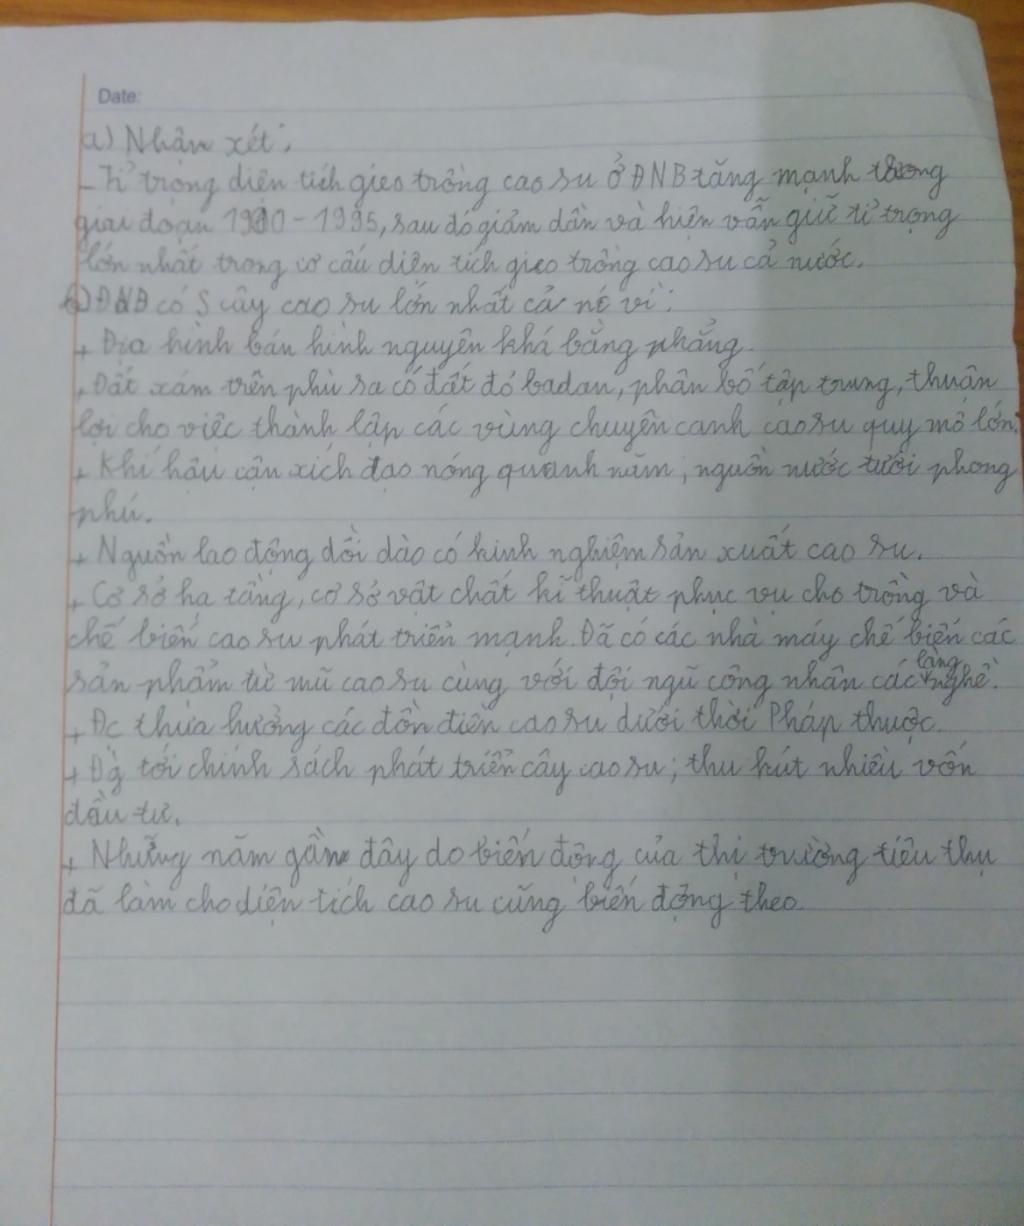 Date:
a) Nhận xét:
- Tỉ trọng diện tích gieo trồng cao su ở ĐNB tăng mạnh trong
giai đoạn 1990 - 1995, sau đó giảm dần và hiện vẫn giữ tỉ trọng
lớn nhất trong cơ cấu diện tích gieo trồng cao su cả nước.
b) ĐNB có S cây cao su lớn nhất cả nc vì:
+ Địa hình bán hình nguyên khá bằng phẳng.
+ Đất xám trên phù sa cổ đất đỏ badan, phân bố tập trung, thuận
lợi cho việc thành lập các vùng chuyên canh cao su quy mô lớn.
+ Khí hậu cận xích đạo nóng quanh năm, nguồn nước tưới phong
phú.
+ Nguồn lao động dồi dào có kinh nghiệm sản xuất cao su.
+ Cơ sở hạ tầng, cơ sở vật chất kĩ thuật phục vụ cho trồng và
chế biến cao su phát triển mạnh. Đã có các nhà máy chế biến các
sản phẩm từ mũ cao su cùng với đội ngũ công nhân các làng nghề.
+ Đc thừa hưởng các đồn điền cao su dưới thời Pháp thuộc.
+ Đg tới chính sách phát triển cây cao su; thu hút nhiều vốn
đầu tư.
+ Những năm gần đây do biến động của thị trường tiêu thụ
đã làm cho diện tích cao su cũng biến động theo.